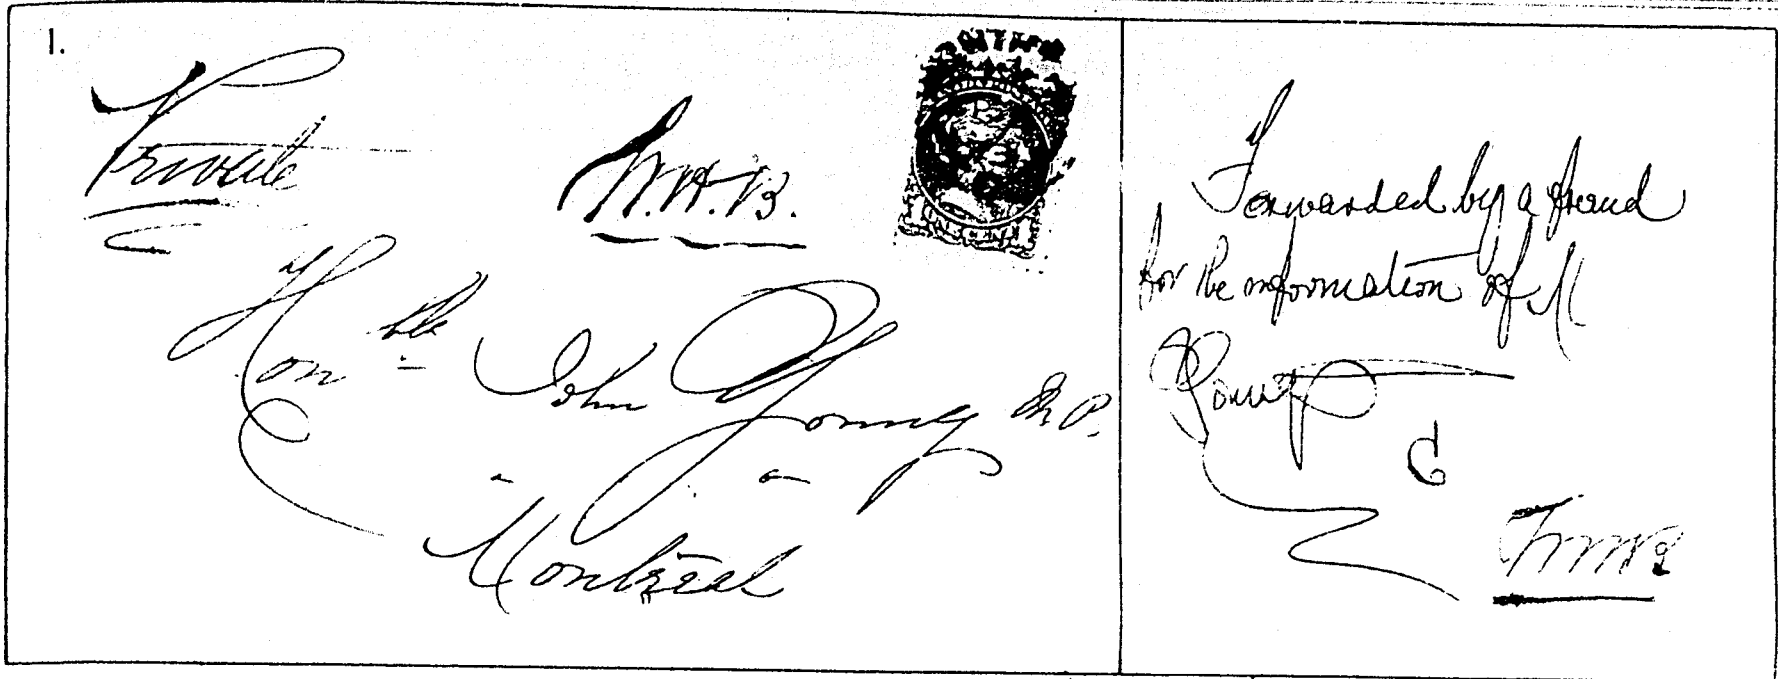 1.
Private
W.H.B.
Honble John Young M.P.
Montreal
Forwarded by a friend
for the information of M
Young